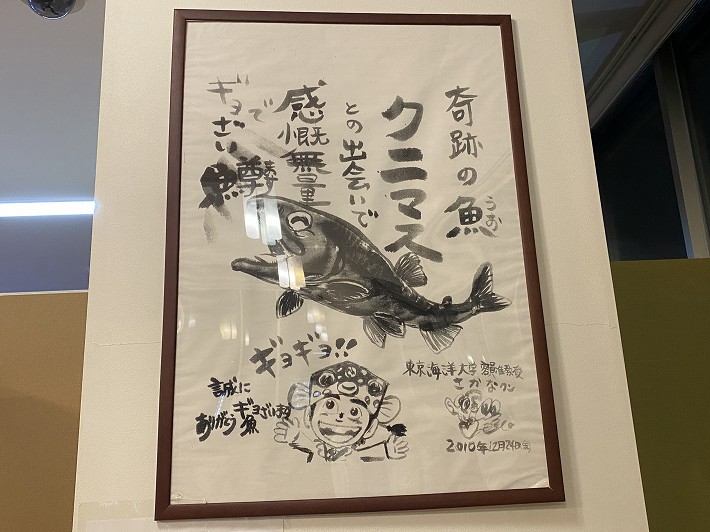 奇跡の魚
うお
クニマス
との出会いで
感慨無量
で
ギョざい
魚
鱒
ギョギョ!!
誠に
ありがとうギョざいます
魚
東京海洋大学客員准教授
さかなクン
2010年12月24日(金)